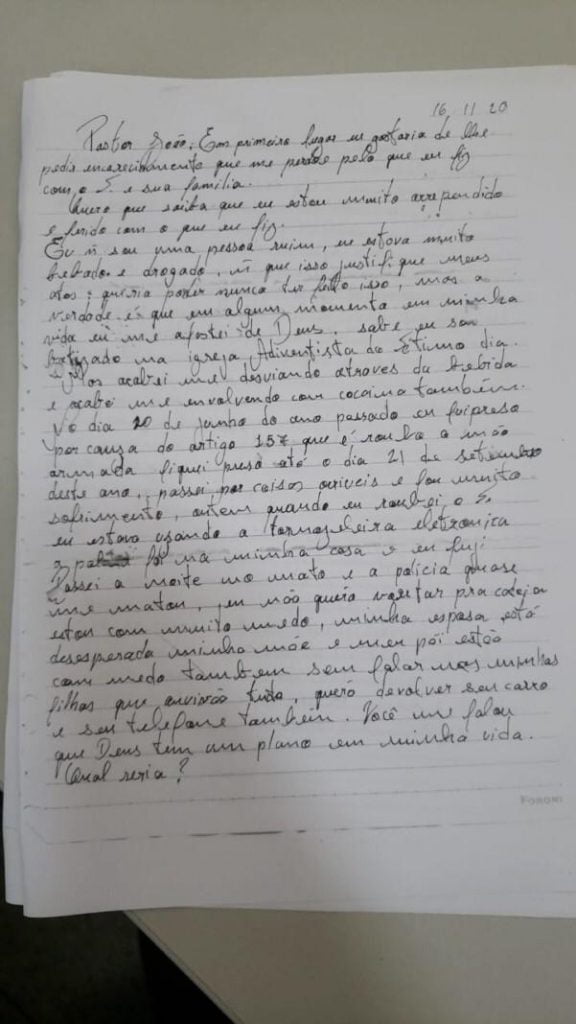 16 11 20
Pastor João, Em primeiro lugar eu gostaria de lhe
pedir encarecidamente que me perdoe pelo que eu fiz
com o Sr e sua família.
Quero que saiba que eu estou muito arrependido
e com o que eu fiz.
Eu ñ sou uma pessoa ruim, eu estava muito
bebado e drogado, ñ que isso justifique meus
atos; queria poder nunca ter feito isso, mas a
verdade é que em algum momento em minha
vida eu me afastei de Deus, sabe eu sou
batizado na igreja Adventista do Sétimo dia.
Mas acabei me desviando atraves da bebida
e acabei me envolvendo com cocaina também.
No dia 20 de junho do ano passado eu fui preso
por causa do artigo 157 que é roubo a mão
armada fiquei preso até o dia 21 de setembro
deste ano, passei por coisas oriveis e foi muito
sofrimento, ontem quando eu roubei o Sr.
eu estava usando a tornozeleira eletronica
a foi na minha casa e eu fugi
Passei a noite no mato e a policia quase
me matou, eu não queria voltar pra cadeia
estou com muito medo, minha esposa está
desesperada minha mãe e meu pai estão
com medo tambem sem falar nas minhas
filhas que tudo, quero devolver seu carro
e seu telefone tambem. Você me falou
que Deus tem um plano em minha vida.
Qual seria?
FORONI